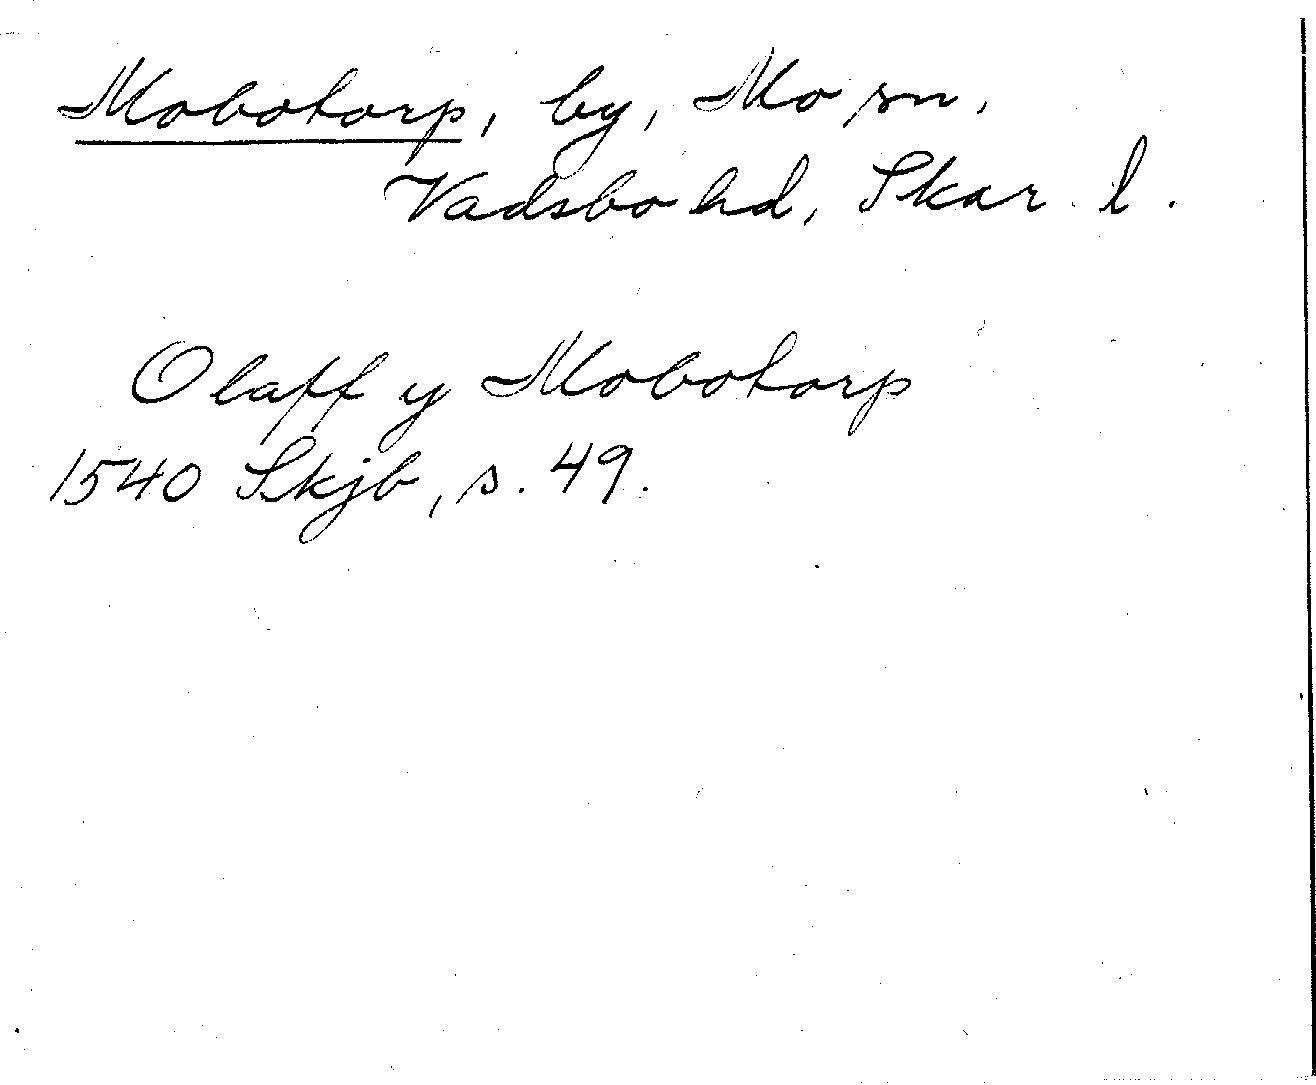 Mobotorp, by, Mo sn,
Vadsbo hd, Skar. l.
Olaff y Mobotorp
1540 Skjb, s. 49.